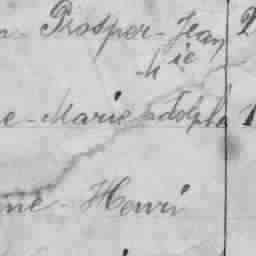 Prosper-Jean
-h ie
e-Marie adolphe
me-Henri